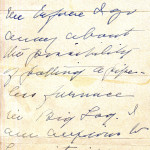 me before I go
away about
the possibility
of putting a pipe-
less furnace
in Big Log. I
am anxious to